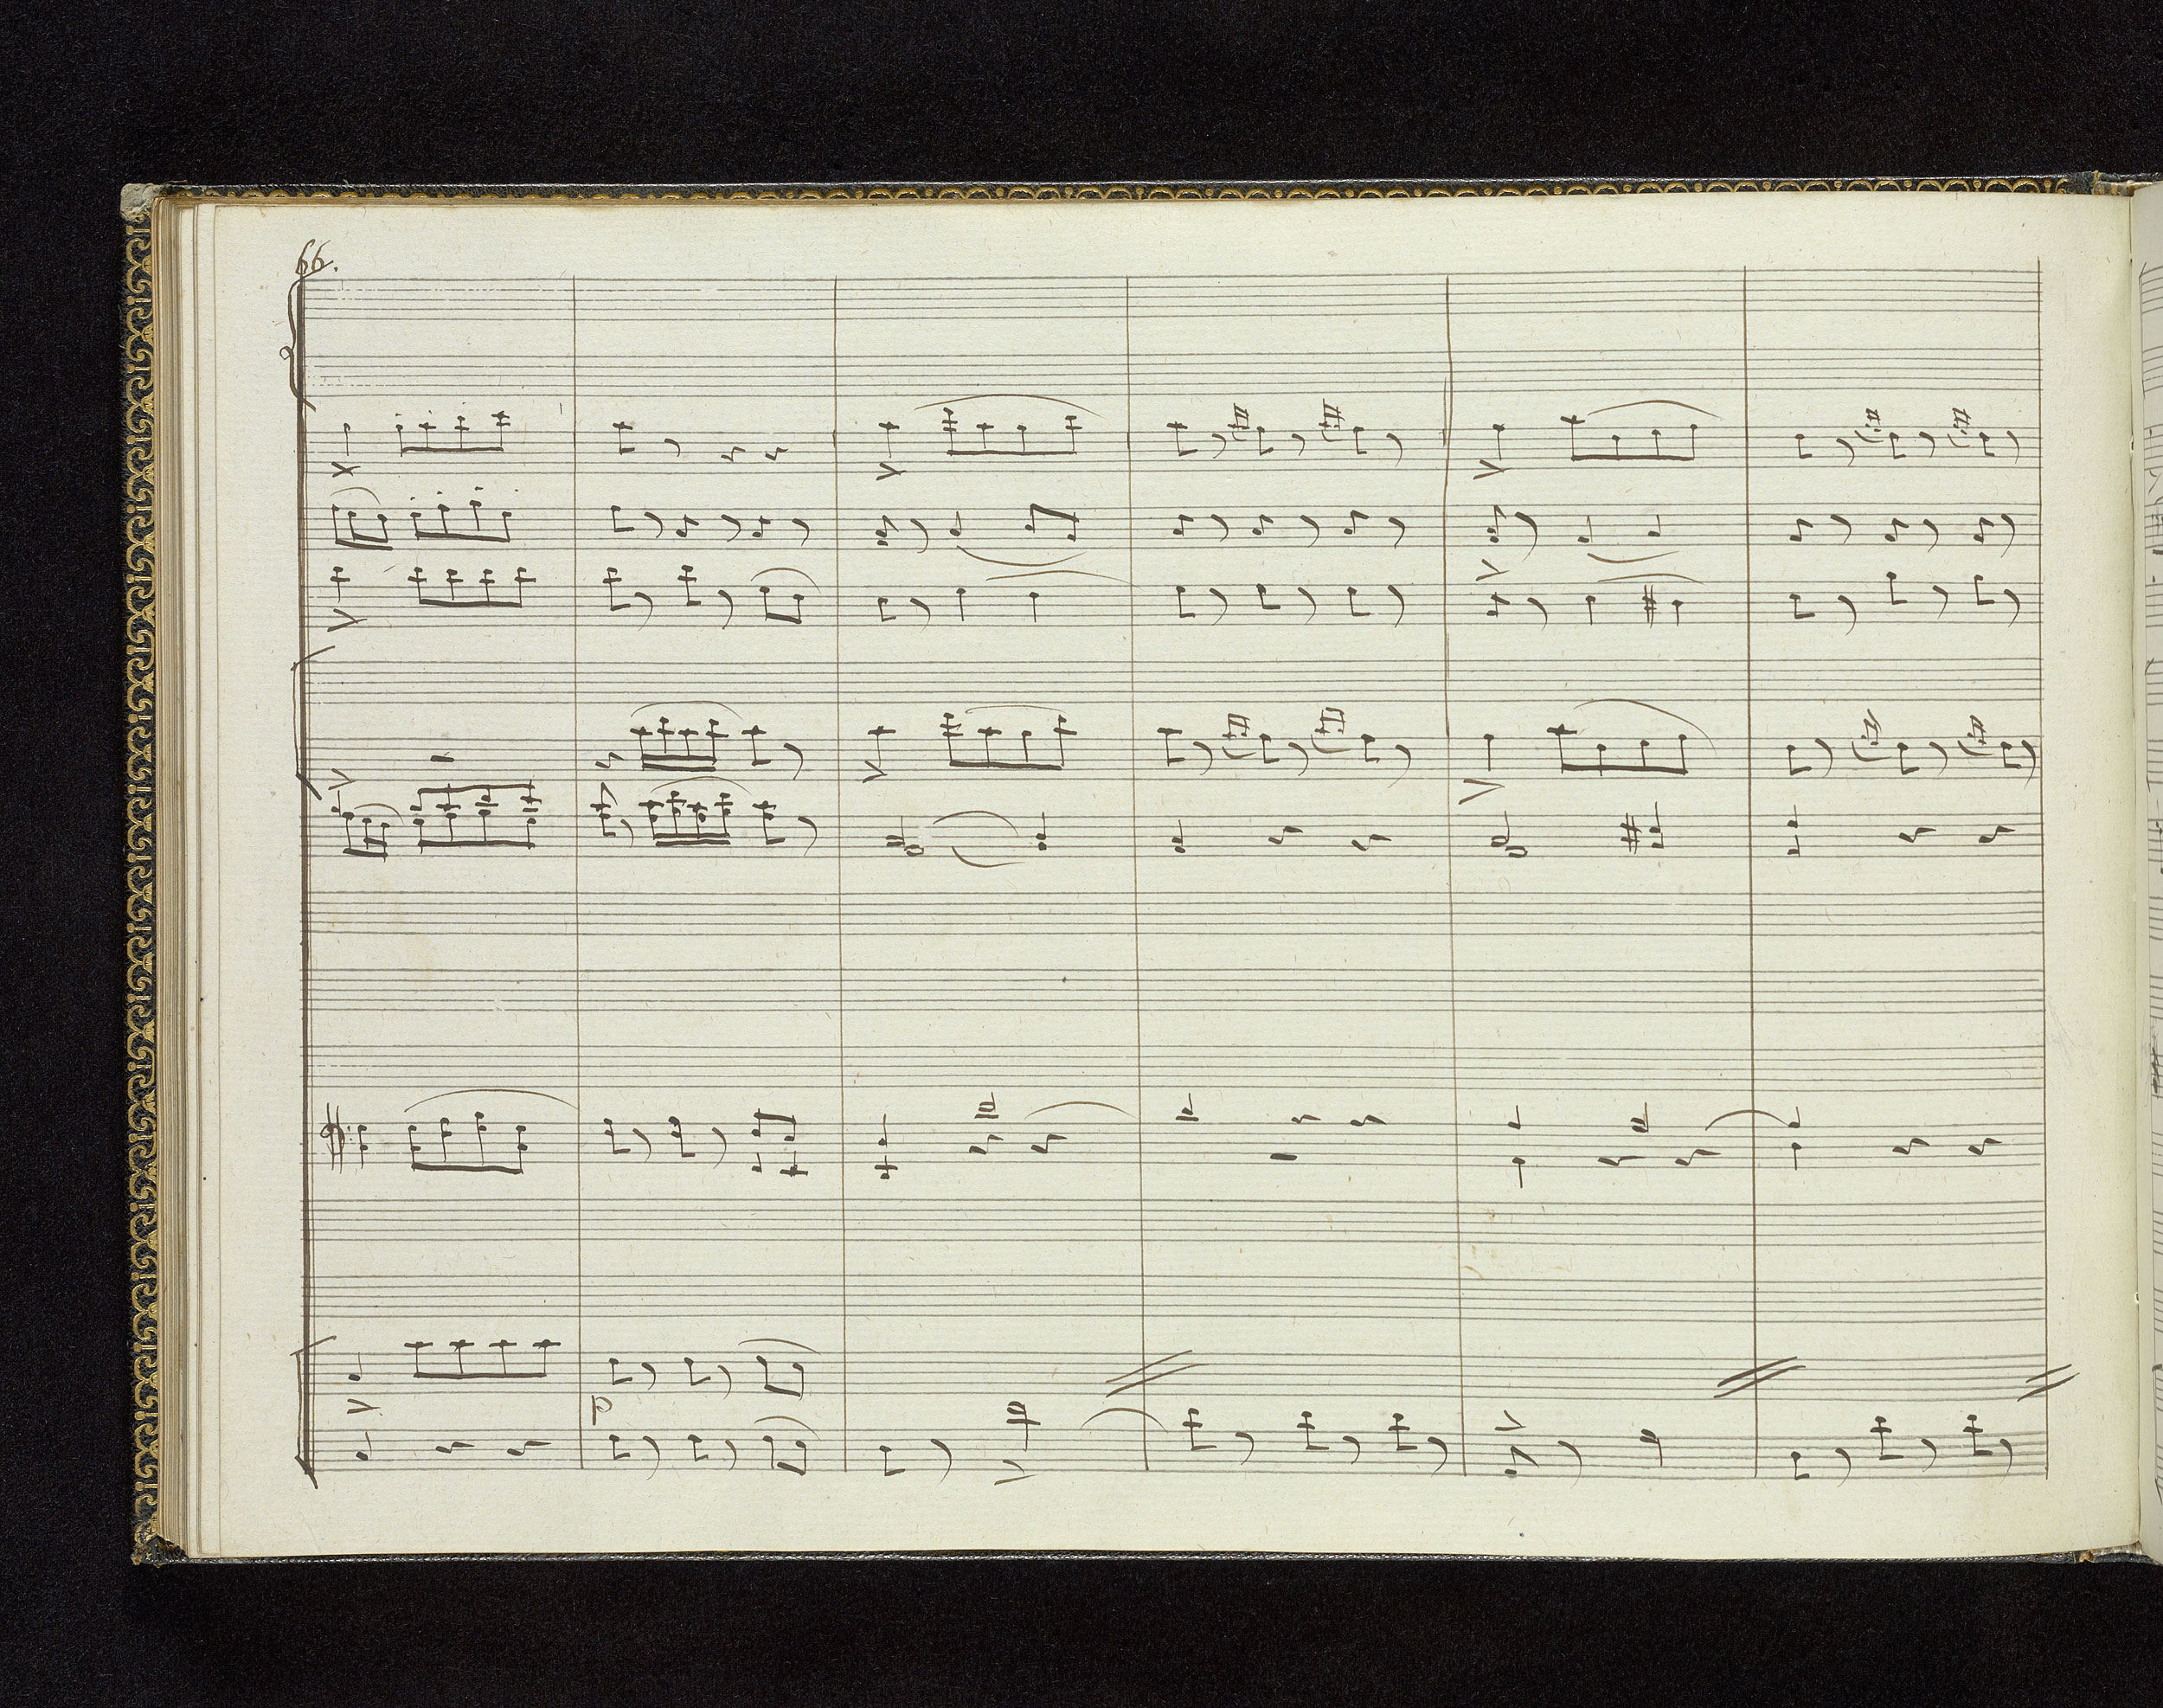 66.
p